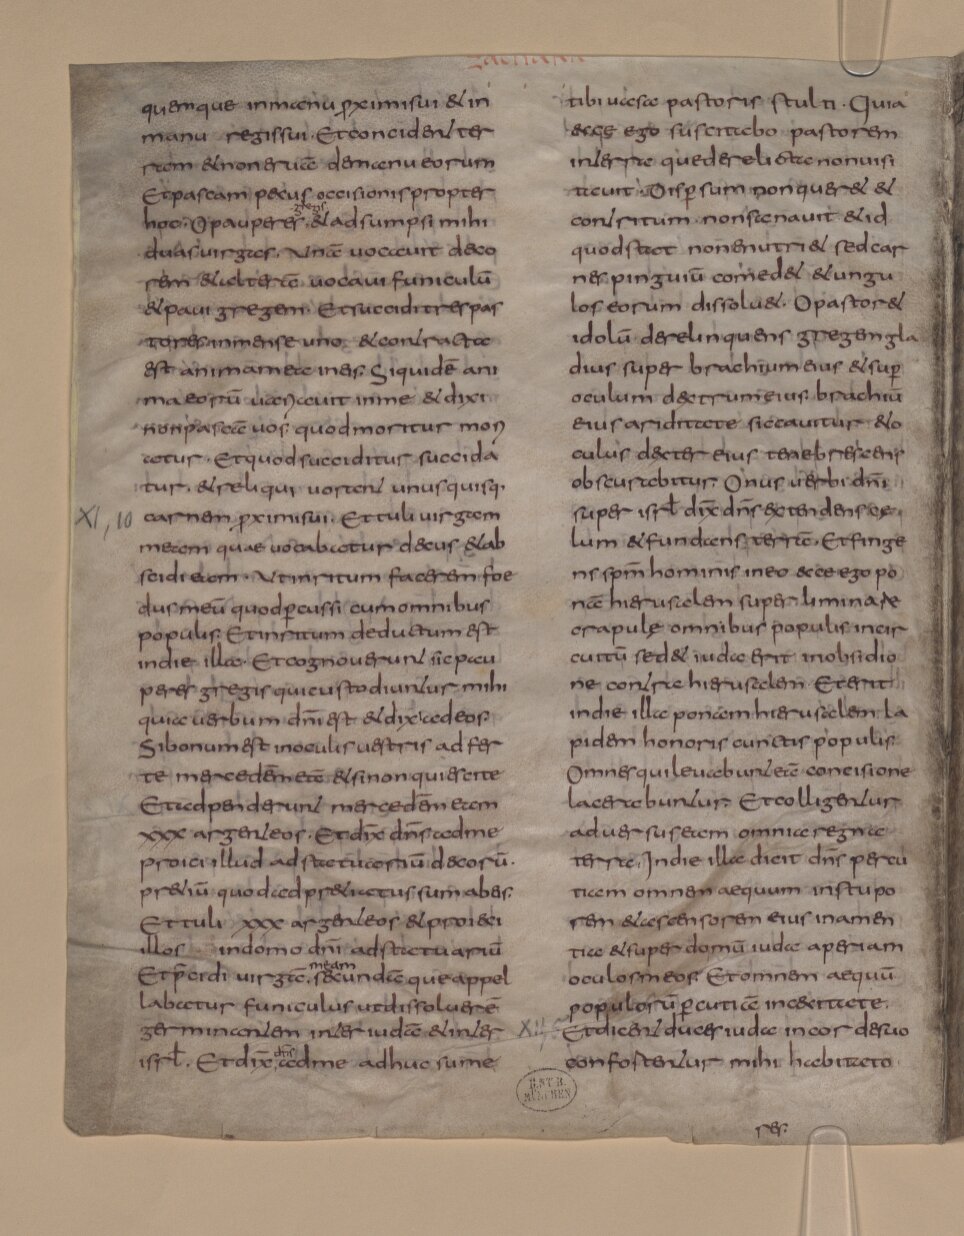 zacharia
quemque in manu ꝓximi sui & in
manu regis sui · Et concident ter
ram & non eruā de manu eorum
Et pascam pecus occisionis propter
hoc · O pauperes gregis & adsumpsi mihi
duas uirgas · Unā uocauit deco
rem & alterā uocaui funiculū
& paui gregem · Et succidi tres pas
tores in mense uno · & contracta
est anima mea in eis · Siquidē ani
ma eorū uariauit in me & dixi
non pascā uos quod moritur mori
atur · Et quod succiditur succida
tur · & reliqui uorent unusquisq·
XI, 10 carnem ꝓximi sui · Et tuli uirgam
meam quae uocabatur decus & ab
scidi eam · Ut inritum facerem foe
dus meū quod ꝑcussi cum omnibus
populis · Et in ritum deductum est
in die illa · Et cognouerunt sic pau
peres gregis qui custodiuntur mihi
quia uerbum dn̄i est & dix̄ ad eos
Si bonum est in oculis uestris adfer
te mercedēm eā & si non quiescite
Et adpenderunt mercedēm eam
xxx argenteos · Et dix̄ dn̄s ad me
proici illud ad statuariū decorū ·
pretiū quod adpretiatus sum ab eis·
Et tuli xxx argenteos & proieci
illos in domo dn̄i ad statuariū
Et p̄cidi uirgā meam secundā que appel
labatur funiculus ut dissoluerē
germinantem inter iudā & inter
isrl̄ · Et dix̄ dn̄s ad me adhuc sume
tibi uasa pastoris stulti · Quia
ecce ego suscitabo pastorem
in terra que derelicta non uisi
tauit · Dispersum non quer& &
contritum non sanauit & id
quod stat non enutri& sed car
nes pinguiū comed& & ungu
los eorum dissolu& · O pastor &
idolū derelinquens gregen gla
dius super brachium eius & suꝑ
oculum dextrum eius brachiū
eius ariditate siccauitur & o
culus dexter eius tenebrescens
obscurabitur · Onus uerbi dn̄i
super isrl̄ dix̄ dn̄s extendens ce
lum & fundans terrā · Et finge
ns spm̄ hominis in eo ecce ego po
nā hierusalem super liminare
crapule omnibus populis in cir
cuitū sed & iuda erit in obsidio
ne contra hierusalem · Et erit
in die illa ponam hierusalem la
pidem honoris cunctis populis
Omnes qui leuabunt eā concisione
lacerabuntur · Et colligentur
aduersus eam omnia regna
terra · In die illa dicit dn̄s percu
tiam omnem aequum in stupo
rem & ascensorem eius in amen
tia & super domū iuda aperiam
oculos meos · Et omnem aequū
populorū ꝑcutiā in caecitate·
XII, Et dicent duces iuda in cor de suo
confortentur mihi habitato
res·
B.ST.B.
MÜNCHEN